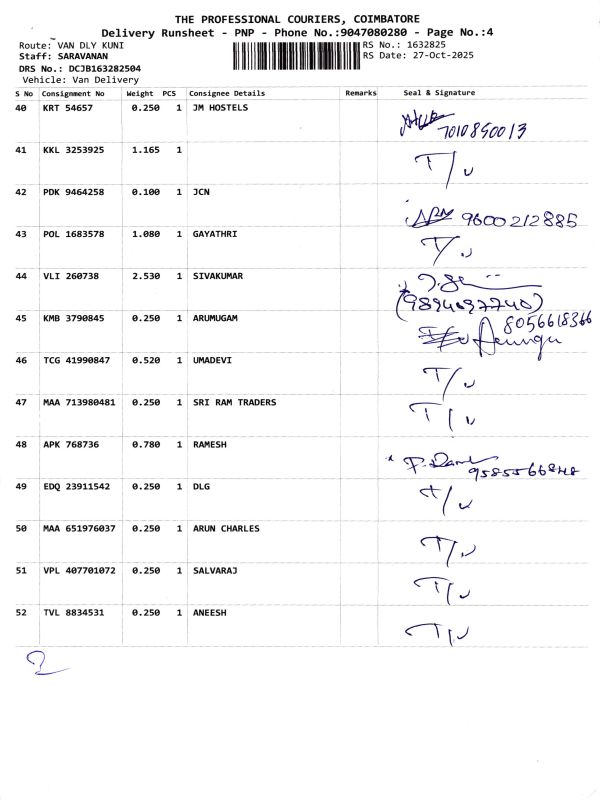 THE PROFESSIONAL COURIERS, COIMBATORE
Delivery Runsheet - PNP - Phone No.:9047080280 - Page No.:4
Route: VAN DLY KUNI RS No.: 1632825
Staff: SARAVANAN RS Date: 27-Oct-2025
DRS No.: DCJB163282504
Vehicle: Van Delivery
S No Consignment No Weight PCS Consignee Details Remarks Seal & Signature
40 KRT 54657 0.250 1 JM HOSTELS 7010850013
41 KKL 3253925 1.165 1 T/
42 PDK 9464258 0.100 1 JCN 9600212885
43 POL 1683578 1.080 1 GAYATHRI T/
44 VLI 260738 2.530 1 SIVAKUMAR
(9894097740)
45 KMB 3790845 0.250 1 ARUMUGAM 8056618366
46 TCG 41990847 0.520 1 UMADEVI T/
47 MAA 713980481 0.250 1 SRI RAM TRADERS T/
48 APK 768736 0.780 1 RAMESH 9585566848
49 EDQ 23911542 0.250 1 DLG T/
50 MAA 651976037 0.250 1 ARUN CHARLES T/
51 VPL 407701072 0.250 1 SALVARAJ T/
52 TVL 8834531 0.250 1 ANEESH T/